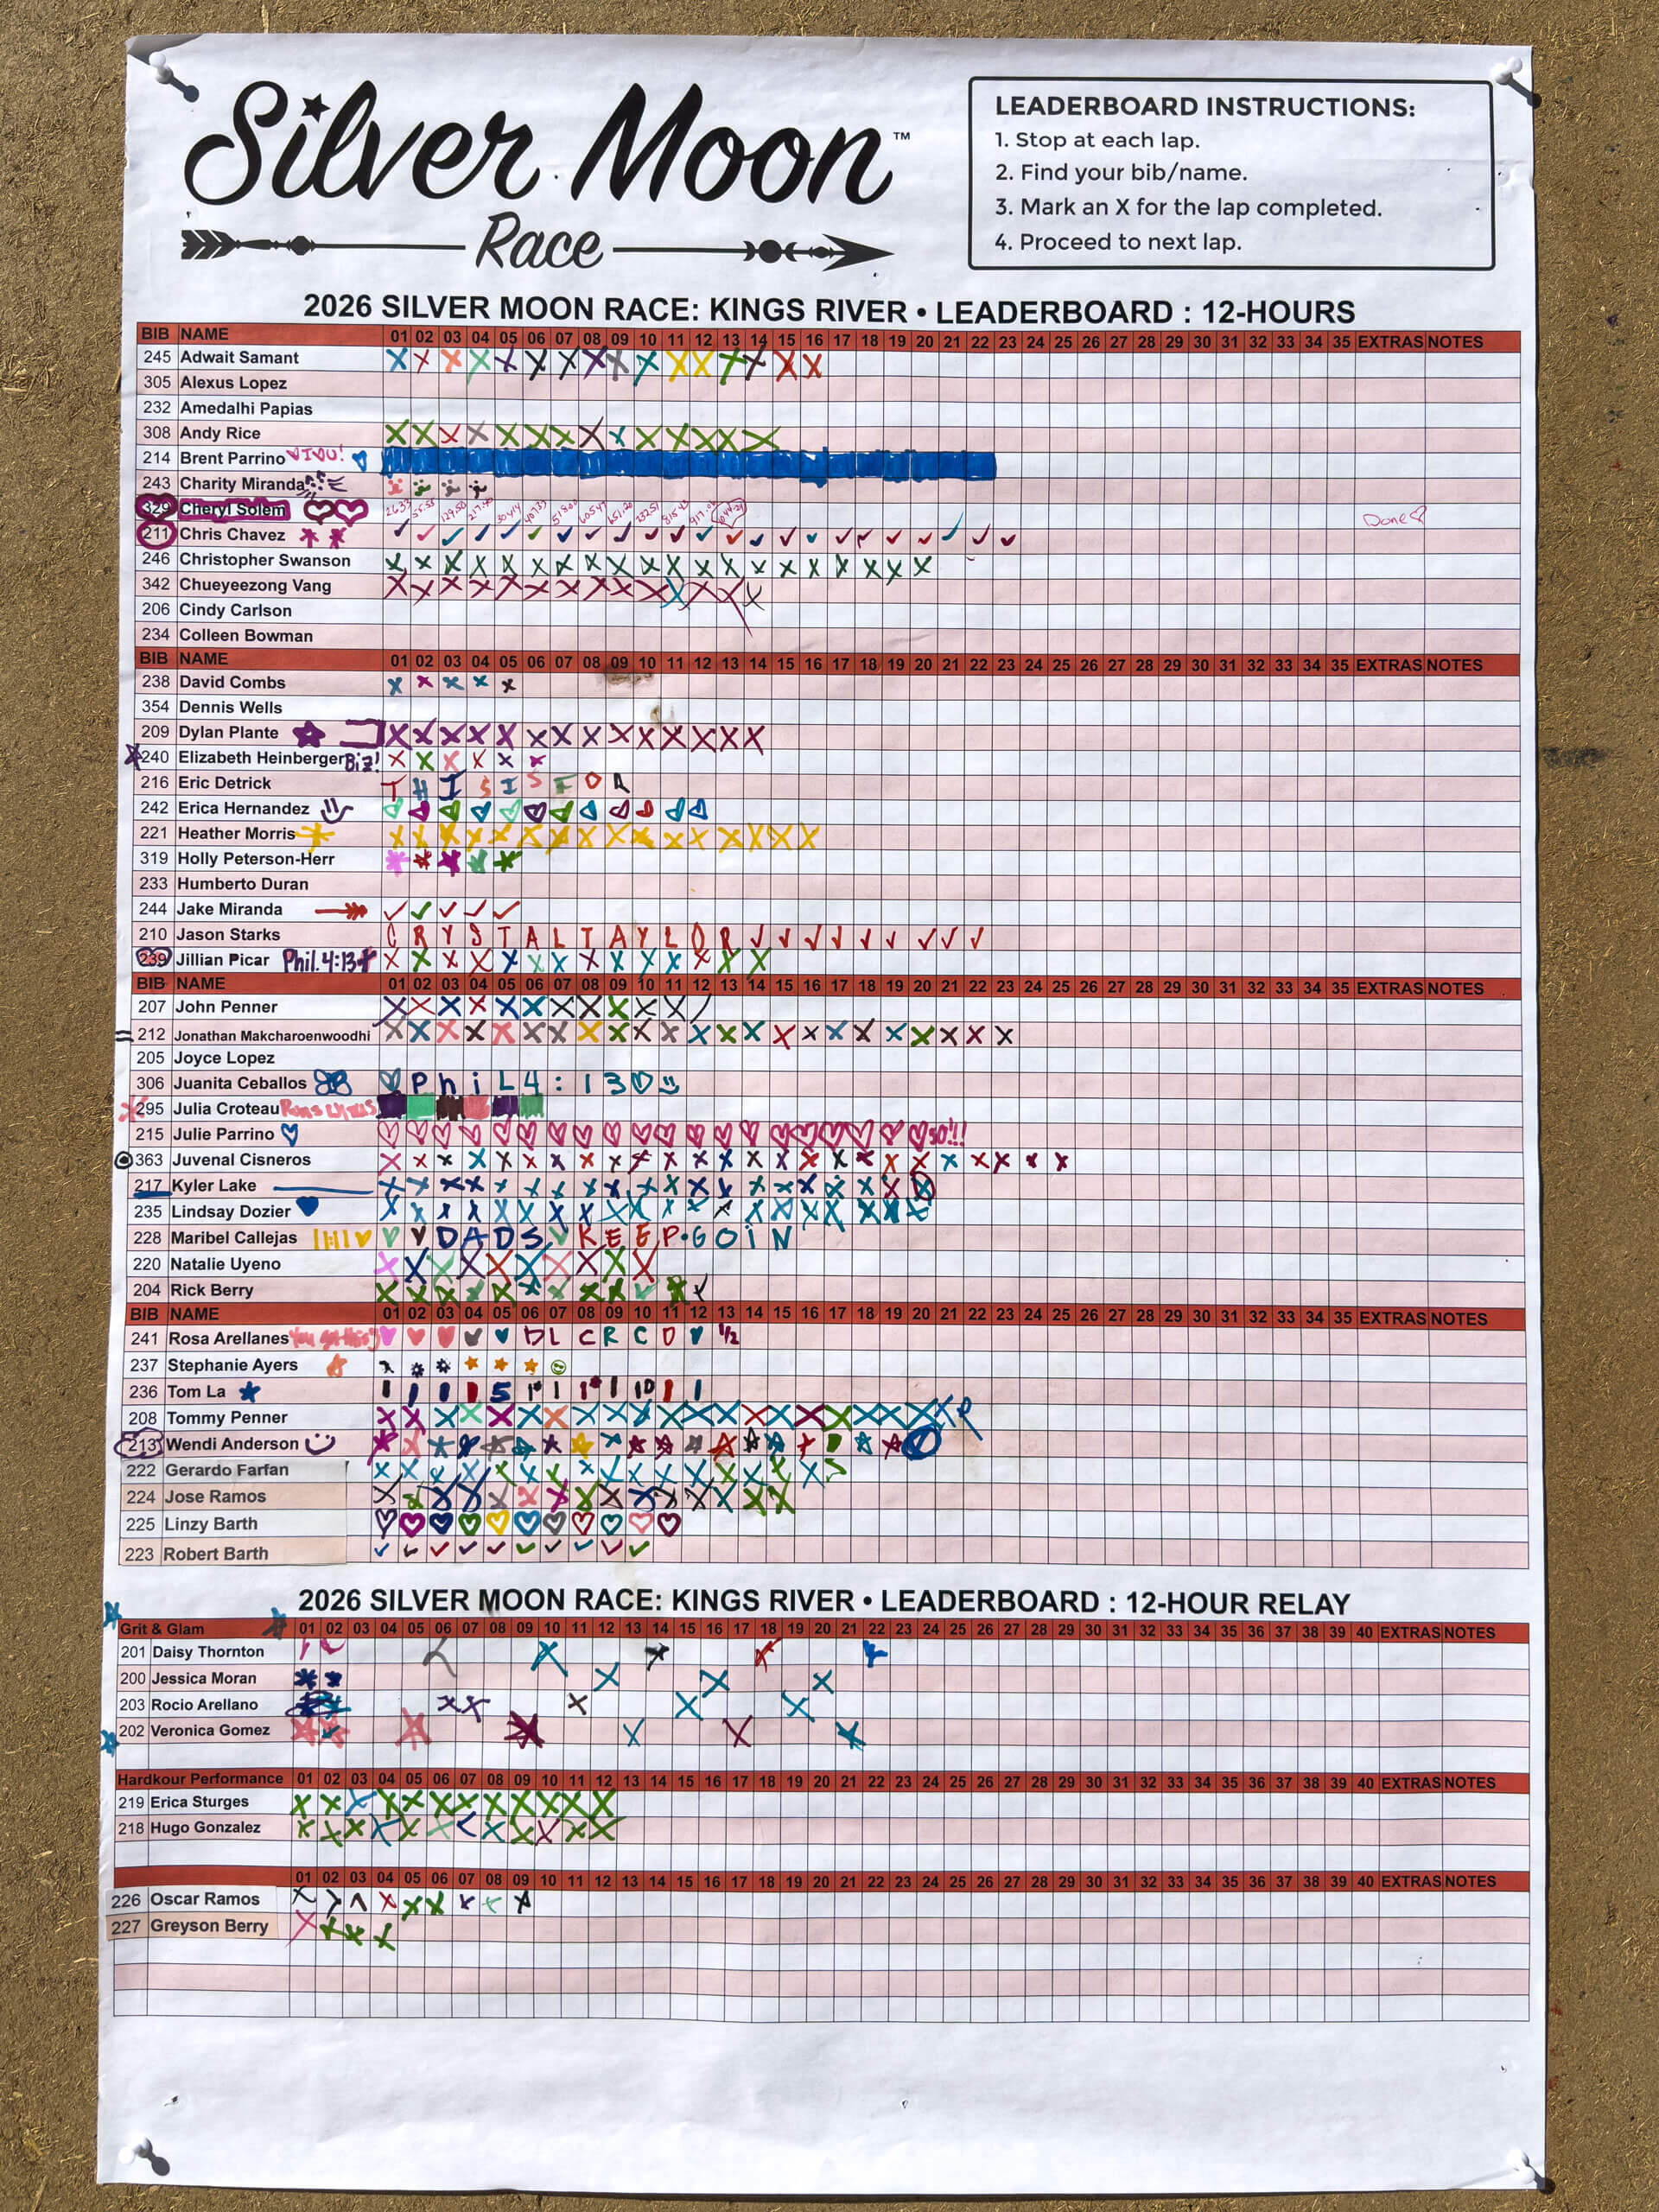 Silver Moon™
Race
LEADERBOARD INSTRUCTIONS:
1. Stop at each lap.
2. Find your bib/name.
3. Mark an X for the lap completed.
4. Proceed to next lap.
2026 SILVER MOON RACE: KINGS RIVER • LEADERBOARD : 12-HOURS
BIB NAME 01 02 03 04 05 06 07 08 09 10 11 12 13 14 15 16 17 18 19 20 21 22 23 24 25 26 27 28 29 30 31 32 33 34 35 EXTRAS NOTES
245 Adwait Samant X X X X X X X X X X X X X X X X
305 Alexus Lopez
232 Amedalhi Papias
308 Andy Rice X X X X X X X X X X X X X X
214 Brent Parrino I U!
243 Charity Miranda
329 Cheryl Solem Done
211 Chris Chavez
246 Christopher Swanson X X X X X X X X X X X X X X X X X X X X
342 Chueyeezong Vang X X X X X X X X X X X X X X
206 Cindy Carlson
234 Colleen Bowman
BIB NAME 01 02 03 04 05 06 07 08 09 10 11 12 13 14 15 16 17 18 19 20 21 22 23 24 25 26 27 28 29 30 31 32 33 34 35 EXTRAS NOTES
238 David Combs X X X X X
354 Dennis Wells
209 Dylan Plante X X X X X X X X X X X X X X
240 Elizabeth Heinberger Biz! X X X X X X
216 Eric Detrick T H I S I S F O R
242 Erica Hernandez
221 Heather Morris X X X X X X X X X X X X X X X X
319 Holly Peterson-Herr
233 Humberto Duran
244 Jake Miranda
210 Jason Starks C R Y S T A L T A Y L O R
239 Jillian Picar Phil. 4:13 X X X X X X X X X X X X X X
BIB NAME 01 02 03 04 05 06 07 08 09 10 11 12 13 14 15 16 17 18 19 20 21 22 23 24 25 26 27 28 29 30 31 32 33 34 35 EXTRAS NOTES
207 John Penner X X X X X X X X X X X /
212 Jonathan Makcharoenwoodhi X X X X X X X X X X X X X X X X X X X X X X X
205 Joyce Lopez
306 Juanita Ceballos P h i L 4 : 1 3
295 Julia Croteau
215 Julie Parrino 50!!!
363 Juvenal Cisneros X X X X X X X X X X X X X X X X X X X X X X X X X
217 Kyler Lake X X X X X X X X X X X X X X X X X X X X
235 Lindsay Dozier X X X X X X X X X X X X X X X X X X X X
228 Maribel Callejas 11:11 D A D S K E E P • G O i N
220 Natalie Uyeno X X X X X X X X X X
204 Rick Berry
BIB NAME 01 02 03 04 05 06 07 08 09 10 11 12 13 14 15 16 17 18 19 20 21 22 23 24 25 26 27 28 29 30 31 32 33 34 35 EXTRAS NOTES
241 Rosa Arellanes You got this D L C R C D 1/2
237 Stephanie Ayers
236 Tom La
208 Tommy Penner X X X X X X X X X X X X X X X X X X X X
213 Wendi Anderson
222 Gerardo Farfan
224 Jose Ramos X X X X X X X X X X X X X X X
225 Linzy Barth
223 Robert Barth
2026 SILVER MOON RACE: KINGS RIVER • LEADERBOARD : 12-HOUR RELAY
Grit & Glam 01 02 03 04 05 06 07 08 09 10 11 12 13 14 15 16 17 18 19 20 21 22 23 24 25 26 27 28 29 30 31 32 33 34 35 36 37 38 39 40 EXTRAS NOTES
201 Daisy Thornton
200 Jessica Moran X X X
203 Rocio Arellano X X X X X
202 Veronica Gomez
Hardkour Performance 01 02 03 04 05 06 07 08 09 10 11 12 13 14 15 16 17 18 19 20 21 22 23 24 25 26 27 28 29 30 31 32 33 34 35 36 37 38 39 40 EXTRAS NOTES
219 Erica Sturges X X X X X X X X X X X X
218 Hugo Gonzalez X X X X X X X X X X X X
01 02 03 04 05 06 07 08 09 10 11 12 13 14 15 16 17 18 19 20 21 22 23 24 25 26 27 28 29 30 31 32 33 34 35 36 37 38 39 40 EXTRAS NOTES
226 Oscar Ramos
227 Greyson Berry X X X X